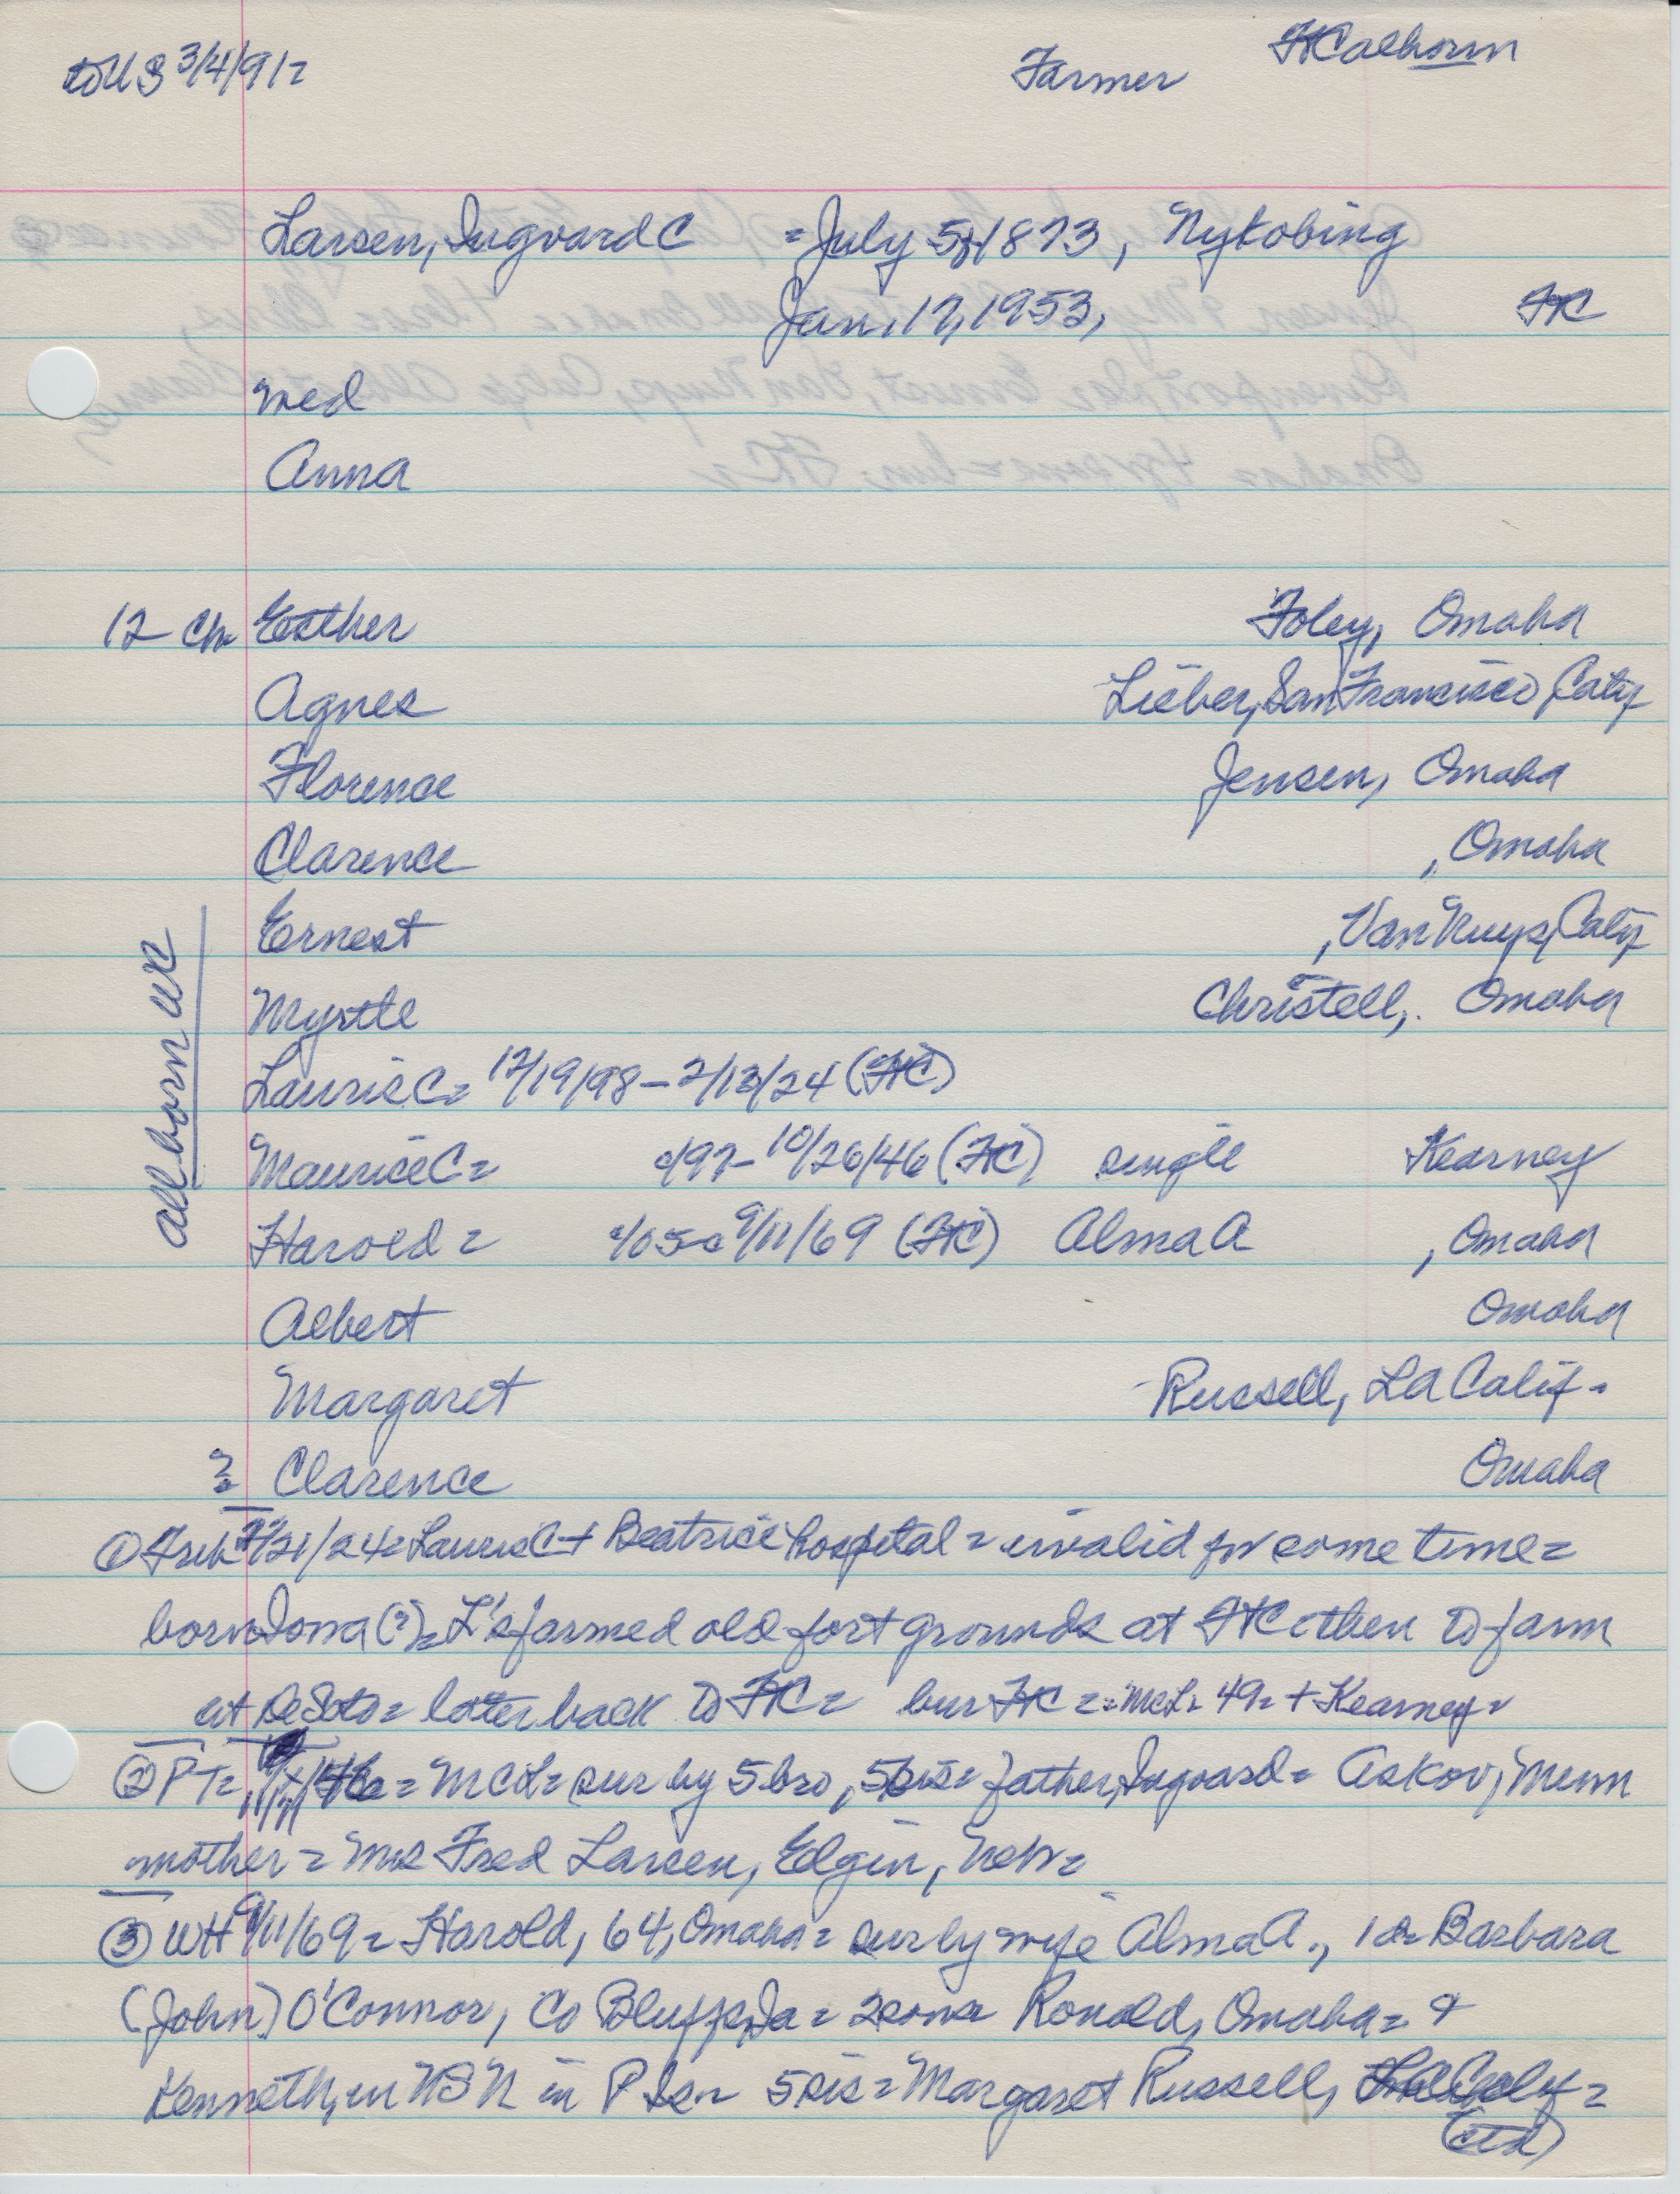 to US 3/4/91=
Farmer
FtCalhoun
Larsen, Ingvard C =July 5, 1873, Nykobing
Jan. 17, 1953, FtC
med
Anna
12 Ch Esther Foley, Omaha
Agnes Lieber, San Francisco Calif
Florence Jensen, Omaha
Clarence , Omaha
Ernest , Van Nuys, Calif
Myrtle Christell, Omaha
all born WC
Lauris C= 12/19/98-2/13/24 (FtC)
Maurice C= /97-10/26/46 (FtC) single Kearney
Harold = /05- 9/11/69 (FtC) Alma A , Omaha
Albert Omaha
Margaret Russell, LA Calif-
? Clarence Omaha
① 2/21/24= Lauris C + Beatrice hospital = invalid for some time=
born Iowa (?)= L's farmed old fort grounds at FtC then to farm
at DeSoto= later back to FtC= bur FtC = McL= 49= + Kearney=
② PT= = MCL= sur by 5 bro, 5 sis= father, Ingvard= Askov, Minn
mother = Mrs Fred Larsen, Elgin, Neb=
③ WH 9/11/69= Harold, 64, Omaha= sur by wife Alma A., 1 da= Barbara
(John) O'Connor, Co Bluffs, Ia= 2 sons= Ronald, Omaha= &
Kenneth, in USN in P Is= 5 sis= Margaret Russell, =